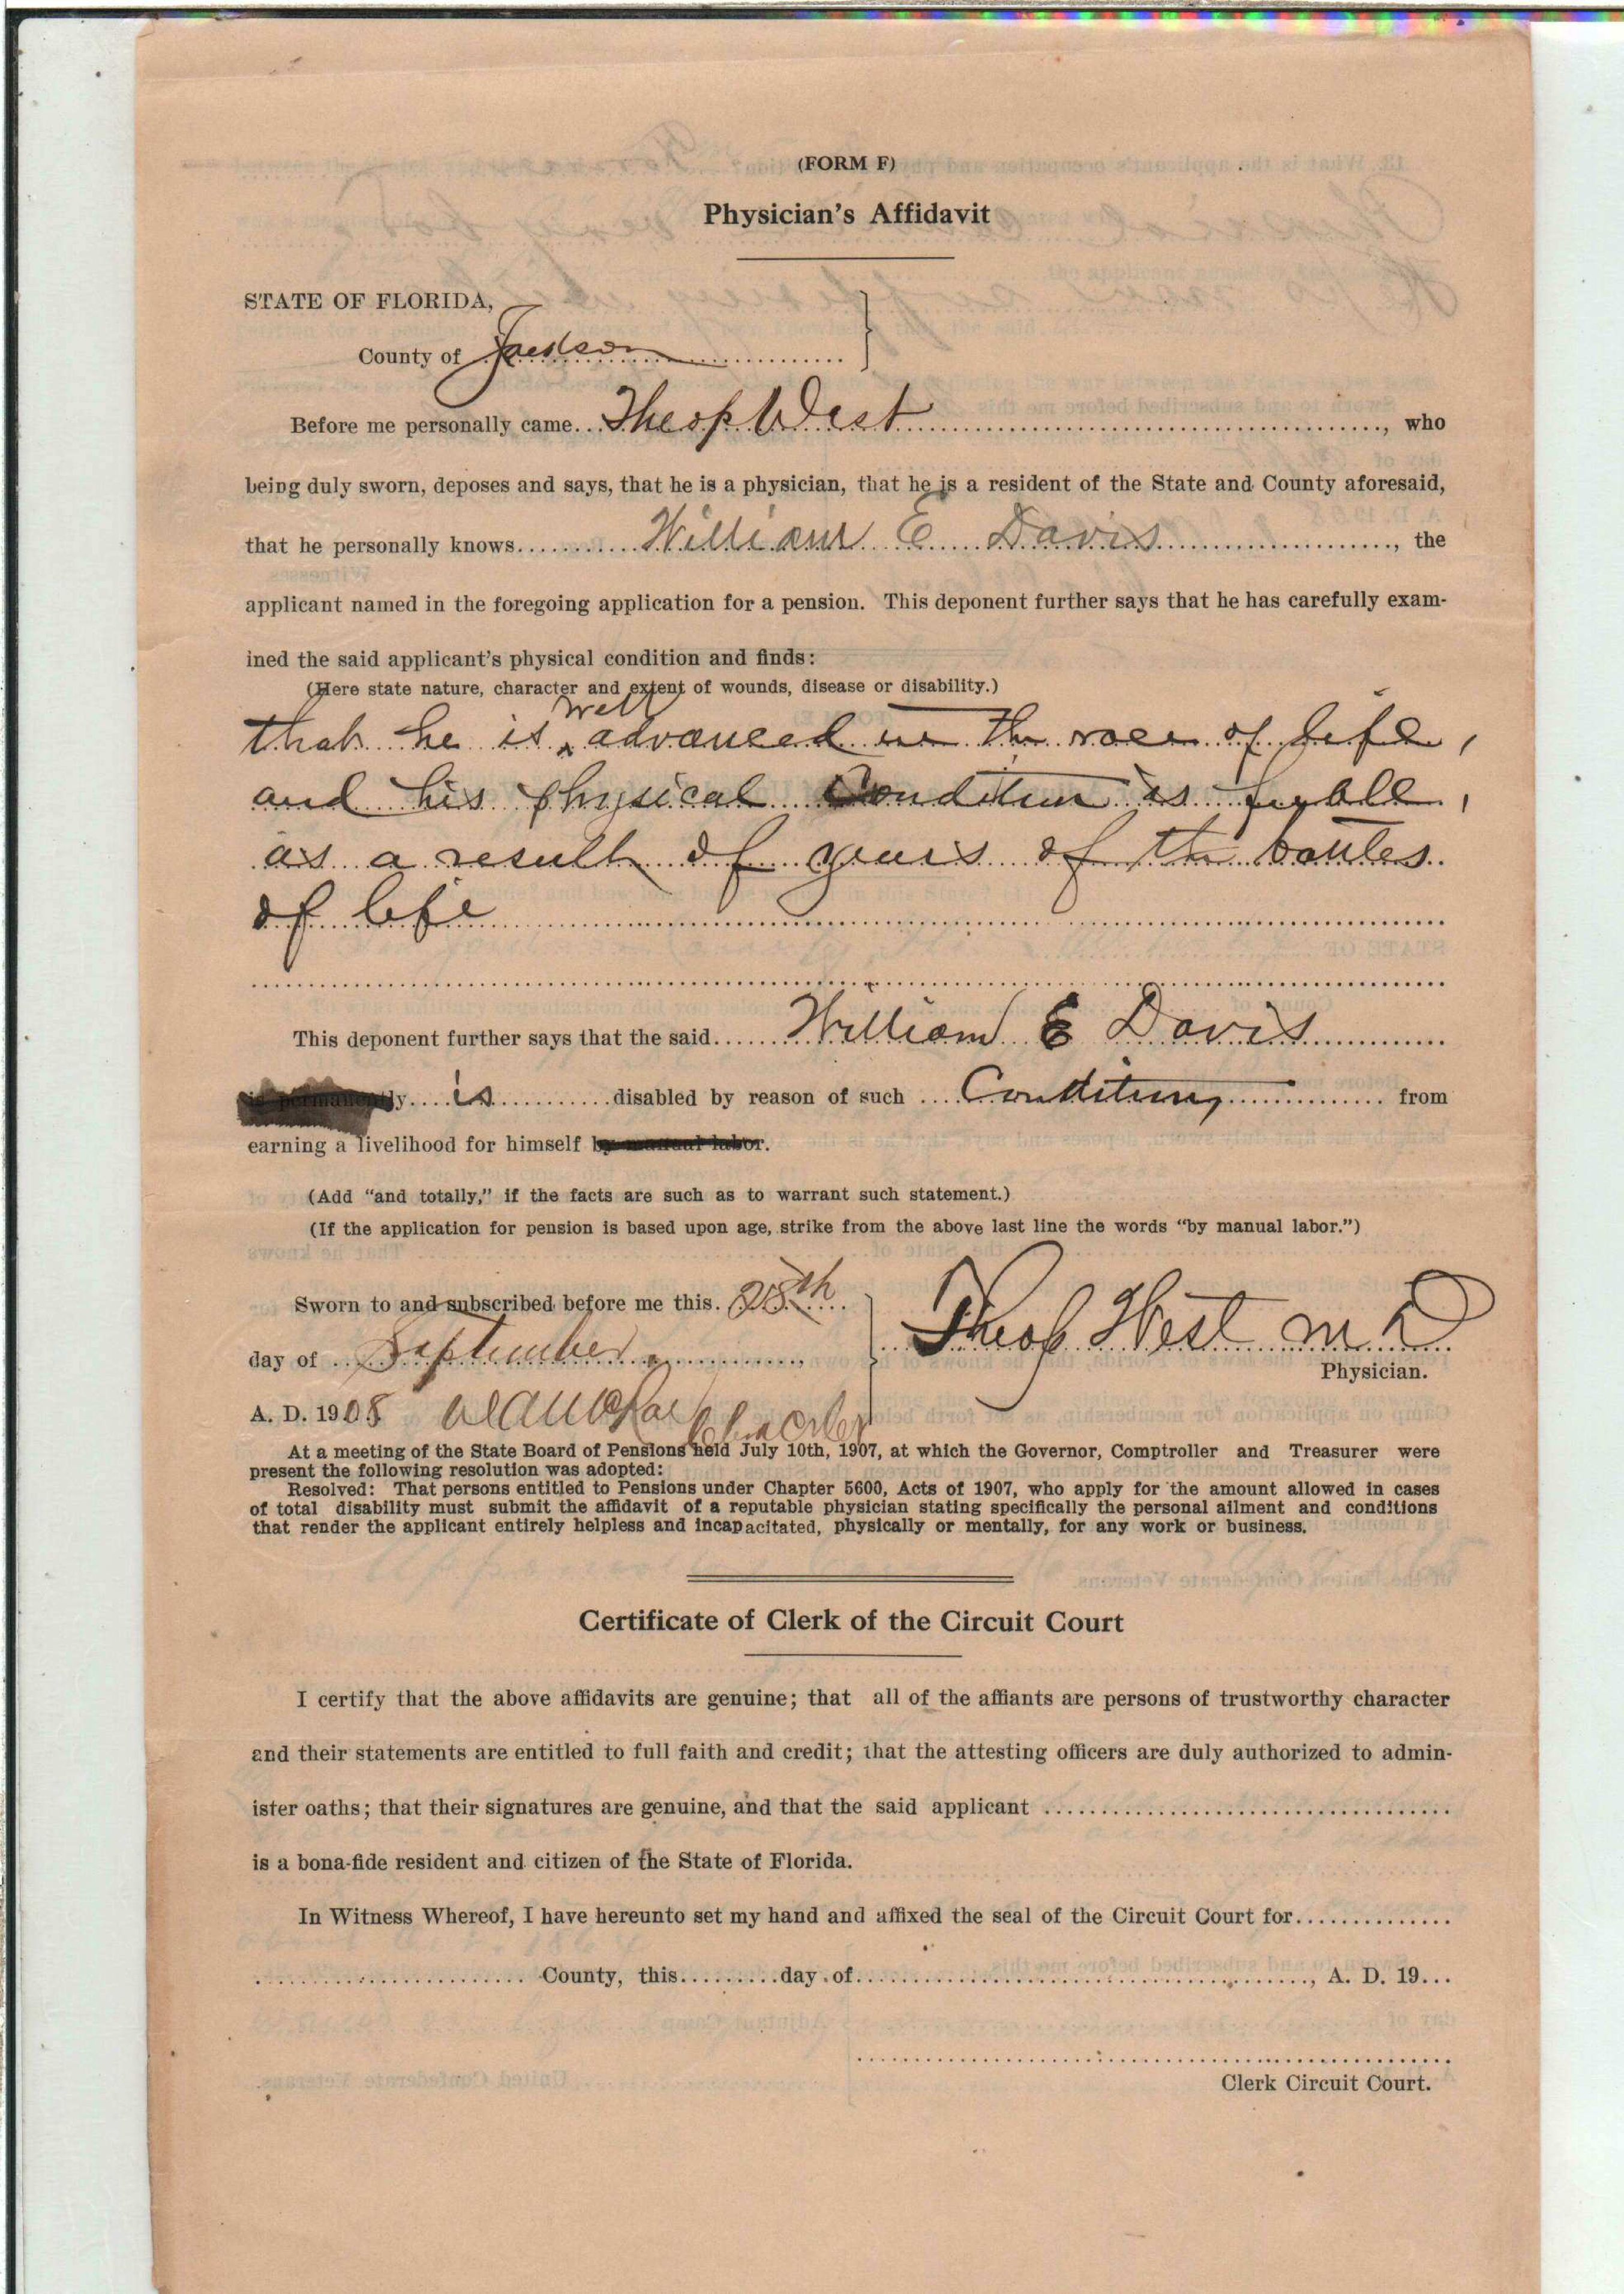 (FORM F)
Physician's Affidavit
STATE OF FLORIDA,
County of Jackson
Before me personally came Theop West, who
being duly sworn, deposes and says, that he is a physician, that he is a resident of the State and County aforesaid,
that he personally knows William E Davis, the
applicant named in the foregoing application for a pension. This deponent further says that he has carefully exam-
ined the said applicant's physical condition and finds:
(Here state nature, character and extent of wounds, disease or disability.)
well
that he is advanced in the race of life,
and his physical Condition is feeble,
as a result of years of the battles
of life
This deponent further says that the said William E Davis
is permanently is disabled by reason of such Condition, from
earning a livelihood for himself by manual labor.
(Add "and totally," if the facts are such as to warrant such statement.)
(If the application for pension is based upon age, strike from the above last line the words "by manual labor.")
Sworn to and subscribed before me this 28th
day of September,
Theop West M D
Physician.
A. D. 1908
At a meeting of the State Board of Pensions held July 10th, 1907, at which the Governor, Comptroller and Treasurer were
present the following resolution was adopted:
Resolved: That persons entitled to Pensions under Chapter 5600, Acts of 1907, who apply for the amount allowed in cases
of total disability must submit the affidavit of a reputable physician stating specifically the personal ailment and conditions
that render the applicant entirely helpless and incapacitated, physically or mentally, for any work or business.
Certificate of Clerk of the Circuit Court
I certify that the above affidavits are genuine; that all of the affiants are persons of trustworthy character
and their statements are entitled to full faith and credit; that the attesting officers are duly authorized to admin-
ister oaths; that their signatures are genuine, and that the said applicant
is a bona-fide resident and citizen of the State of Florida.
In Witness Whereof, I have hereunto set my hand and affixed the seal of the Circuit Court for
County, this day of, A. D. 19
Clerk Circuit Court.